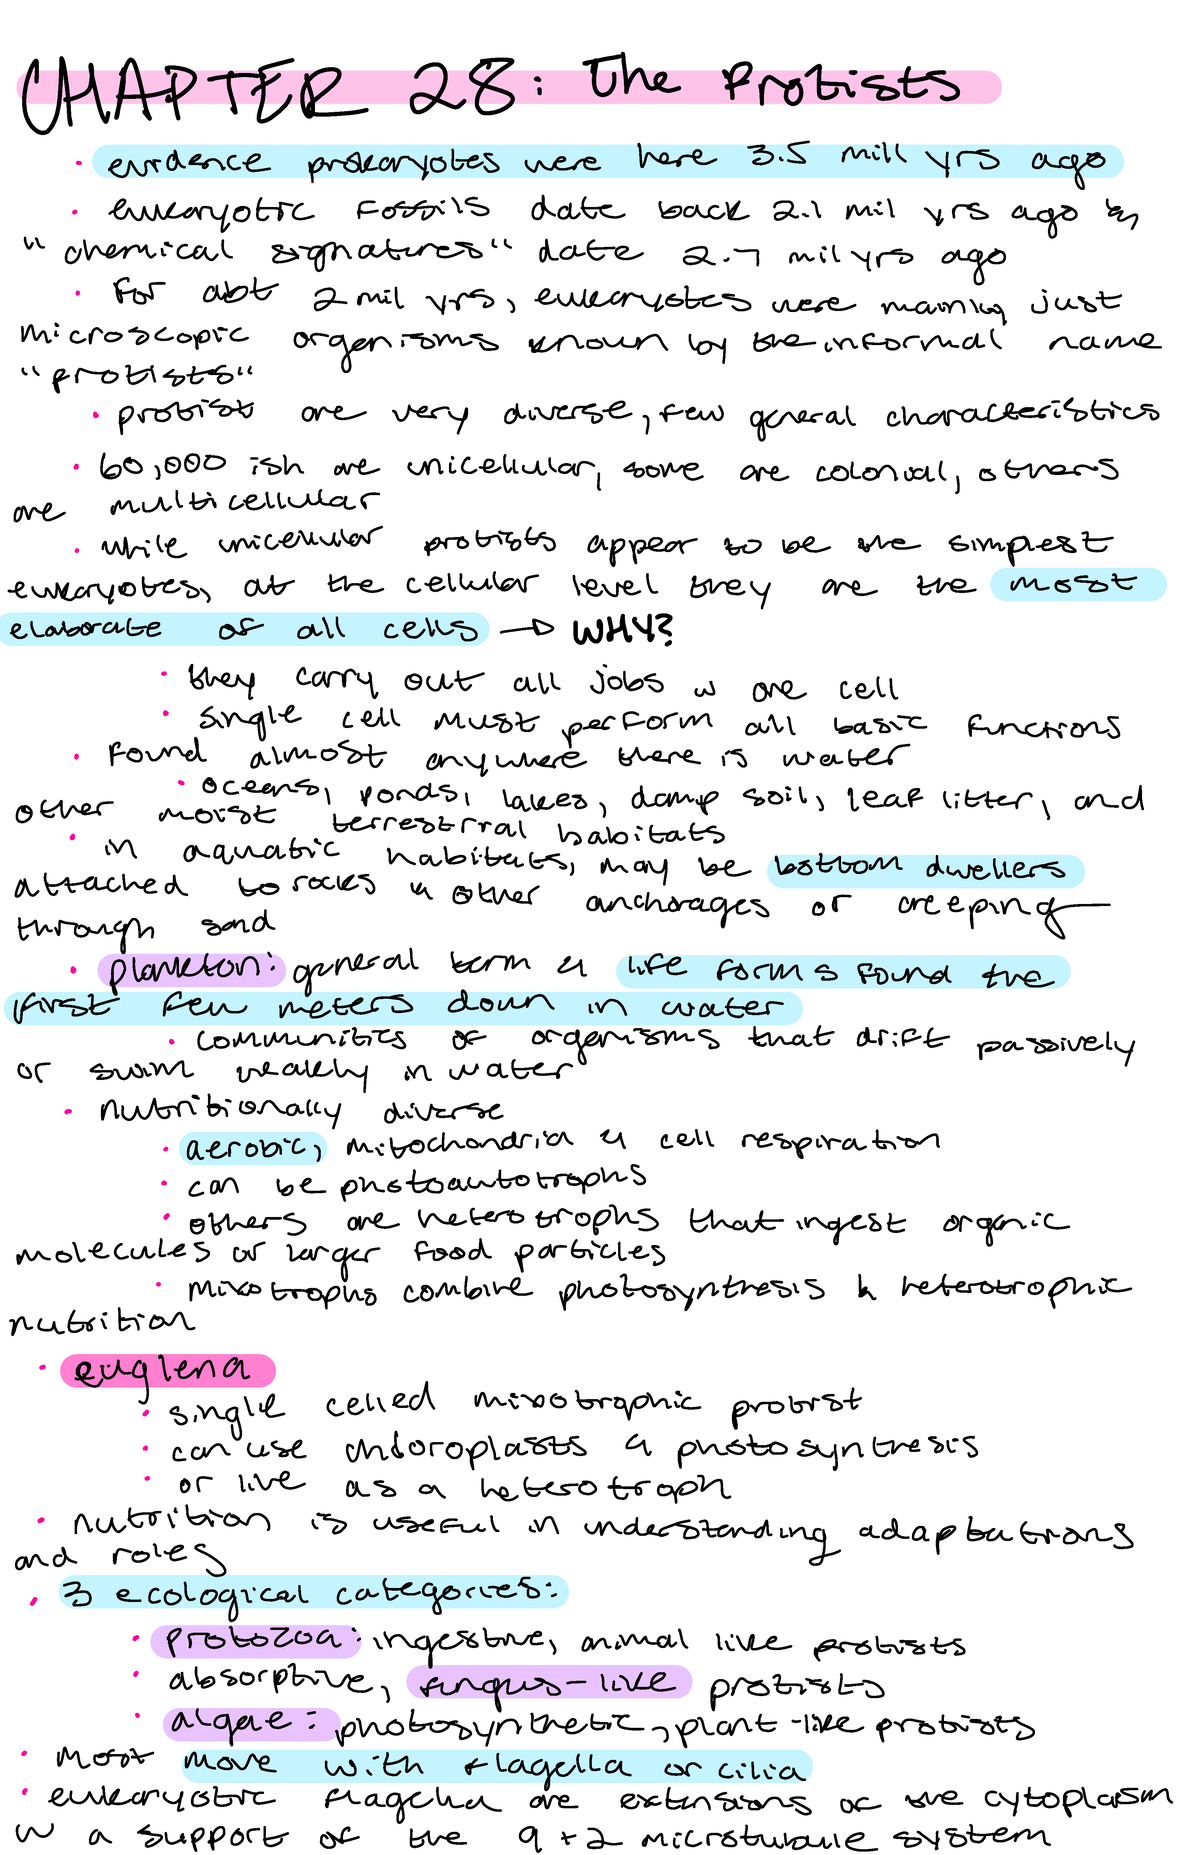 CHAPTER 28: The Protists
• evidence prokaryotes were here 3.5 mill yrs ago
• eukaryotic fossils date back 2.1 mil yrs ago &
"chemical signatures" date 2.7 mil yrs ago
• for abt 2 mil yrs, eukaryotes were mainly just
microscopic organisms known by the informal name
"protists"
• protist are very diverse, few general characteristics
• 60,000 ish are unicellular, some are colonial, others
are multicellular
• while unicellular protists appear to be the simplest
eukaryotes, at the cellular level they are the most
elaborate of all cells → WHY?
• they carry out all jobs w one cell
• single cell must perform all basic functions
• found almost anywhere there is water
• oceans, ponds, lakes, damp soil, leaf litter, and
other moist terrestrial habitats
• in aquatic habitats, may be bottom dwellers
attached to rocks & other anchorages or creeping
through sand
• plankton: general term 4 life forms found the
first few meters down in water
• communities of organisms that drift passively
or swim weakly in water
• nutritionally diverse
• aerobic, mitochondria 4 cell respiration
• can be photoautotrophs
• others are heterotrophs that ingest organic
molecules or larger food particles
• mixotrophs combine photosynthesis & heterotrophic
nutrition
• euglena
• single celled mixotrophic protist
• can use chloroplasts 4 photosynthesis
• or live as a heterotroph
• nutrition is useful in understanding adaptations
and roles
• 3 ecological categories:
• protozoa: ingestive, animal like protists
• absorptive, fungus-like protists
• algae: photosynthetic, plant-like protists
• Most move with flagella or cilia
• eukaryotic flagella are extensions of the cytoplasm
w a support of the 9+2 microtubule system